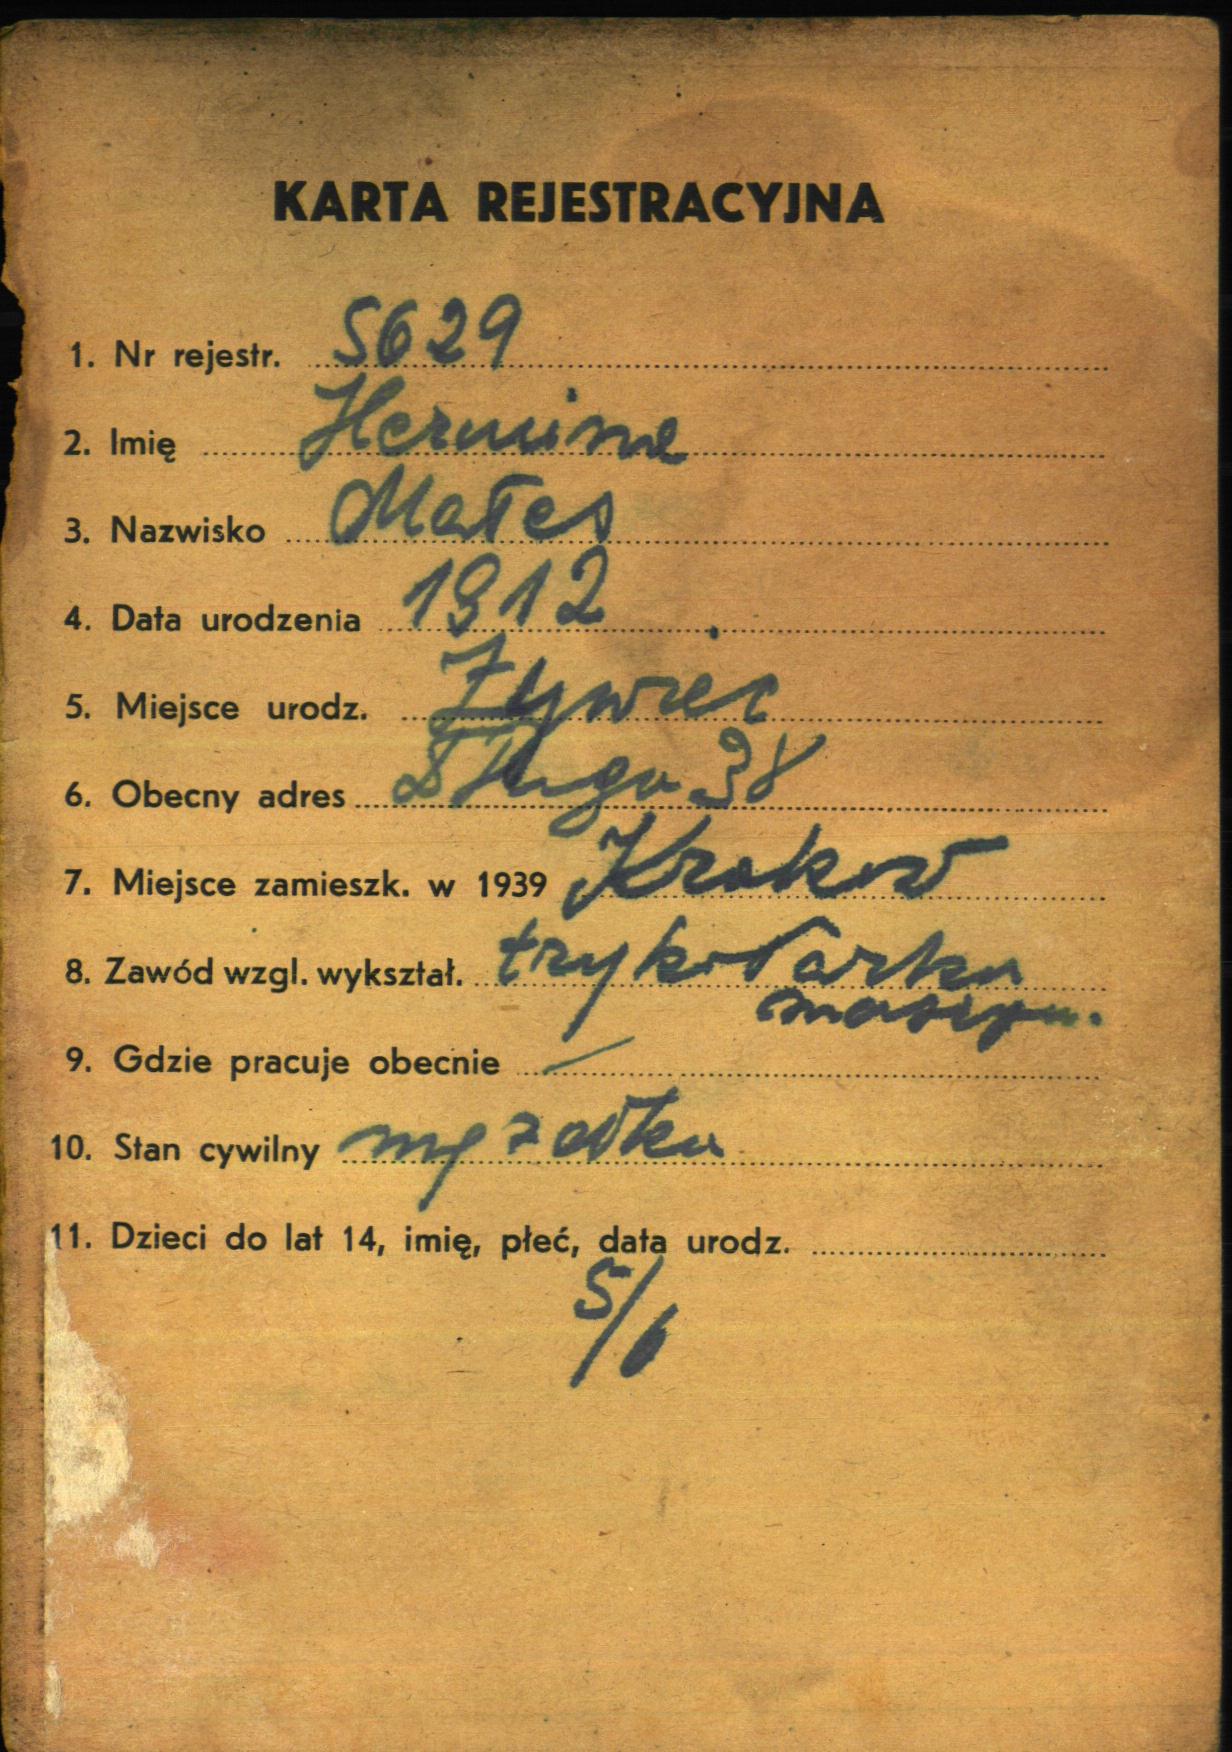 KARTA REJESTRACYJNA
1. Nr rejestr. 5629
2. Imię Hermina
3. Nazwisko Mates
4. Data urodzenia 1912
5. Miejsce urodz. Żywiec
6. Obecny adres Długa 38
7. Miejsce zamieszk. w 1939 Krakow
8. Zawód wzgl. wykształ. trykotarka
maszyn.
9. Gdzie pracuje obecnie —
10. Stan cywilny mężatka
11. Dzieci do lat 14, imię, płeć, data urodz.
5/6